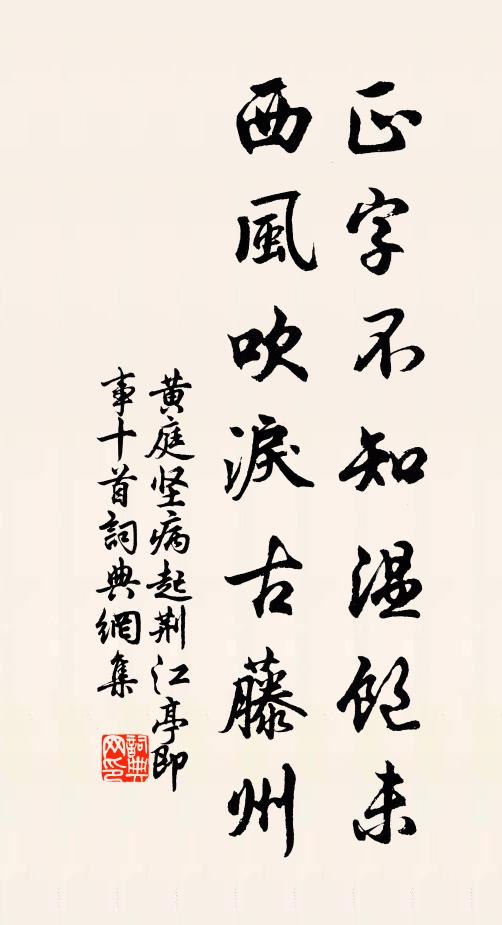 正字不知温飽未
西風吹淚古藤州
黄庭坚病起荆江亭即
事十首詞典網集
詞典
网印